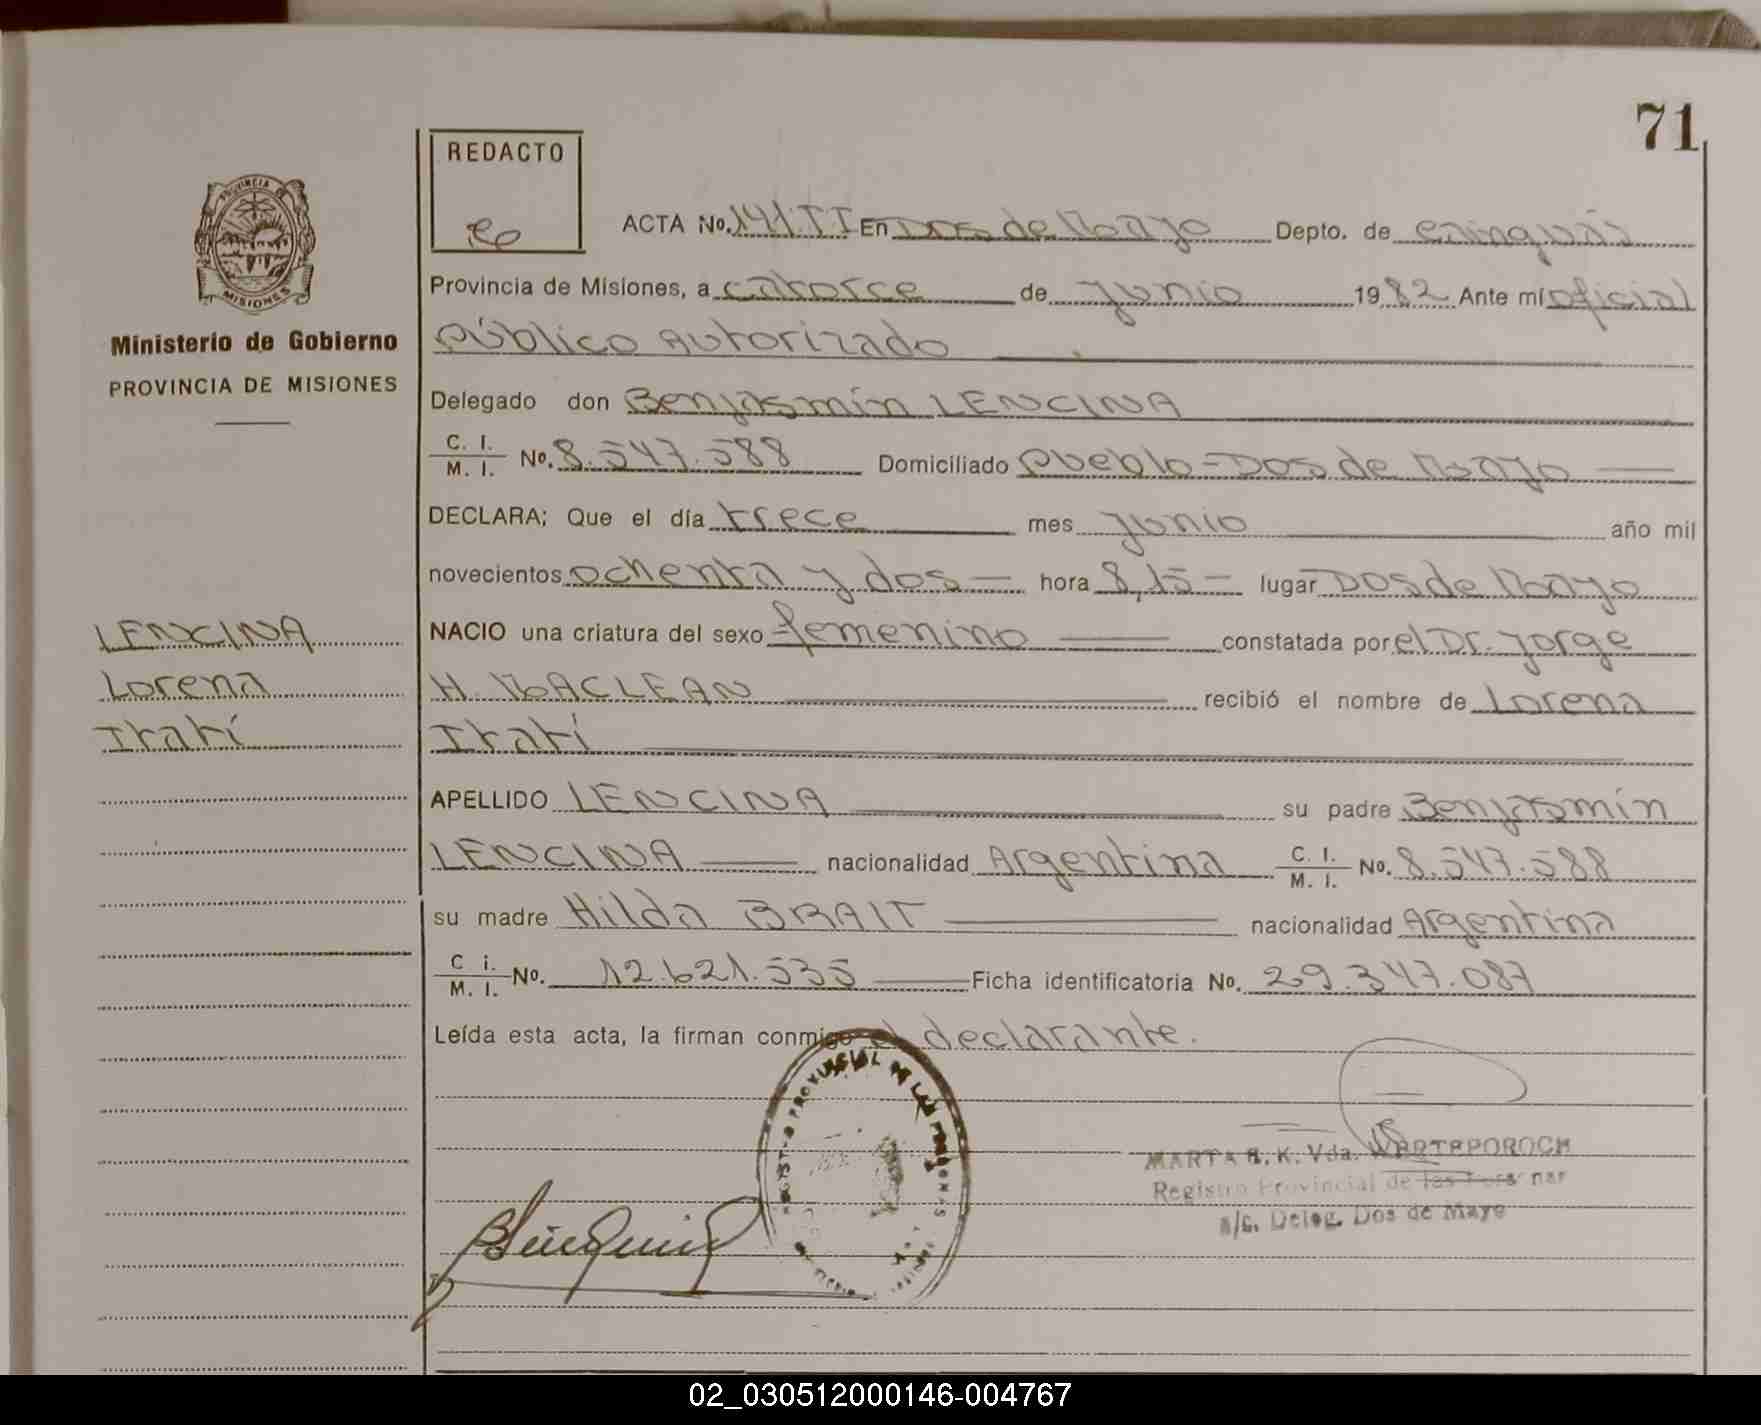 71
REDACTO
ACTA No. 141.TI En Dos de Mayo Depto. de Cainguás
Provincia de Misiones, a catorce de junio 1982 Ante mí oficial
público autorizado
Delegado don Benjasmín LENCINA
C. I. / M. I. No. 8.547.588 Domiciliado Pueblo-Dos de Mayo
DECLARA; Que el día trece mes junio año mil
novecientos ochenta y dos hora 8,15 lugar Dos de Mayo
NACIO una criatura del sexo femenino constatada por el Dr. Jorge
H. MACLEAN recibió el nombre de Lorena
Itatí
APELLIDO LENCINA su padre Benjasmín
LENCINA nacionalidad Argentina C. I. / M. I. No. 8.547.588
su madre Hilda BRAIT nacionalidad Argentina
C i. / M. I. No. 12.621.535 Ficha identificatoria No. 29.347.087
Leída esta acta, la firman conmigo el declarante.
PROVINCIA DE
MISIONES
Ministerio de Gobierno
PROVINCIA DE MISIONES
LENCINA
Lorena
Itatí
PROVINCIAL DE LAS
MARTA R. K. Vda.
Registro Provincial de las
a/c. Deleg. Dos de Mayo
02_030512000146-004767